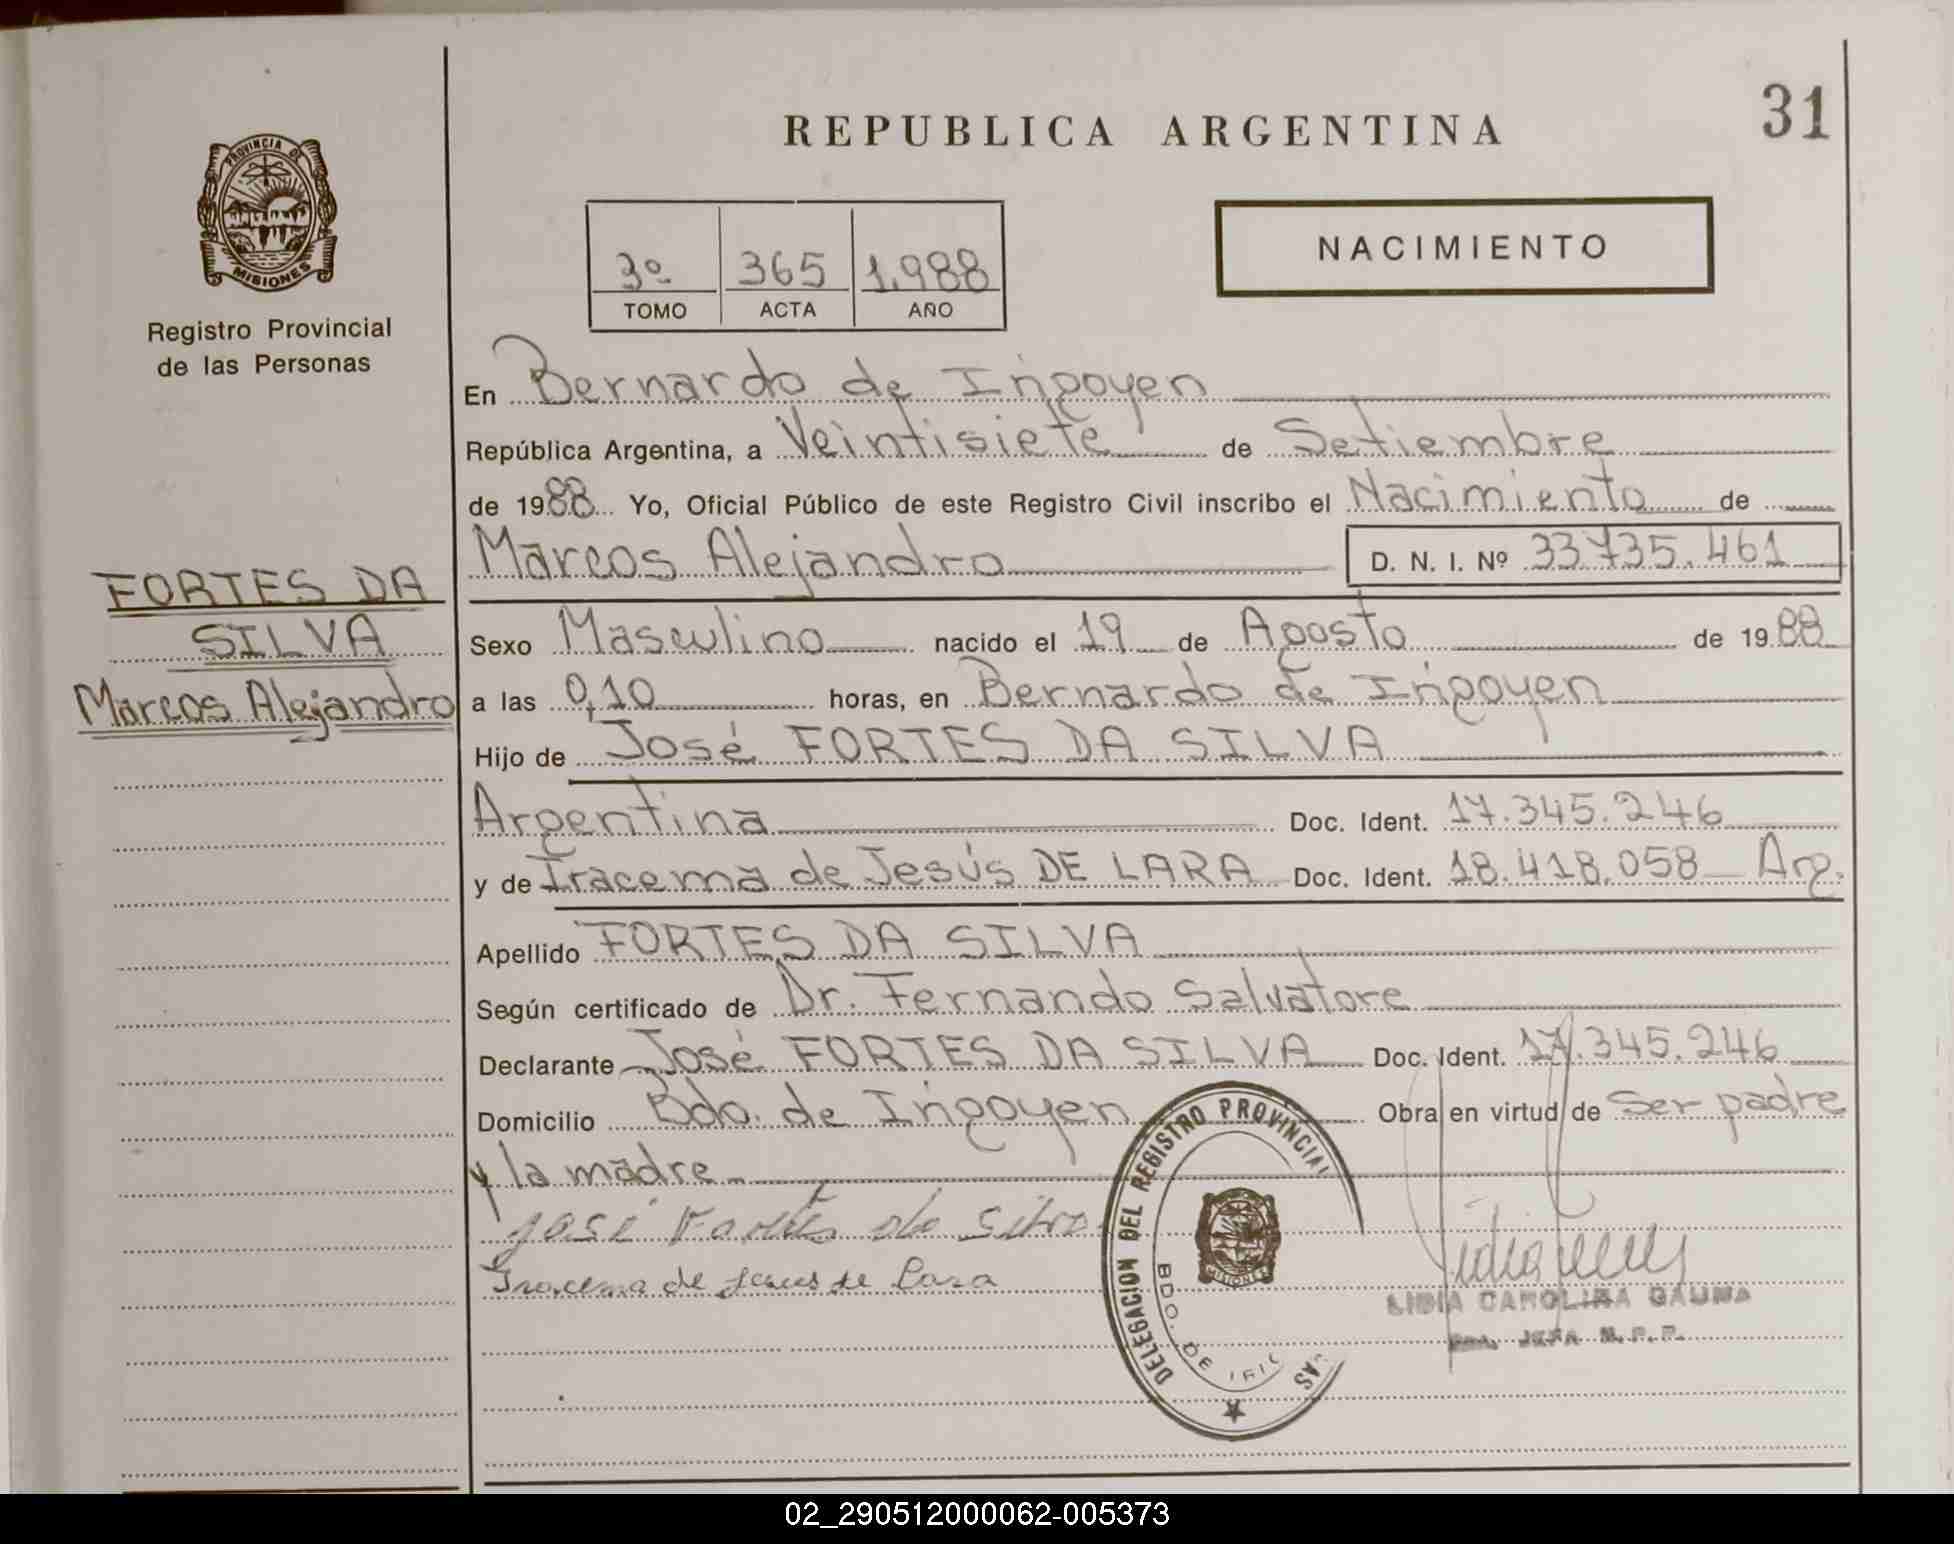 REPUBLICA ARGENTINA
31
PROVINCIA DE
MISIONES
Registro Provincial
de las Personas
3º 365 1.988
TOMO ACTA AÑO
NACIMIENTO
En Bernardo de Irigoyen
República Argentina, a Veintisiete de Setiembre
de 1988 Yo, Oficial Público de este Registro Civil inscribo el Nacimiento de
Marcos Alejandro D. N. I. Nº 33.735.461
FORTES DA
SILVA
Marcos Alejandro
Sexo Masculino nacido el 19 de Agosto de 1988
a las 0,10 horas, en Bernardo de Irigoyen
Hijo de José FORTES DA SILVA
Argentina Doc. Ident. 17.345.246
y de Iracema de Jesús DE LARA Doc. Ident. 18.418.058 Arg.
Apellido FORTES DA SILVA
Según certificado de Dr. Fernando Salvatore
Declarante José FORTES DA SILVA Doc. Ident. 17.345.246
Domicilio Bdo. de Irigoyen Obra en virtud de Ser padre
y la madre
José Fortes da Silva
Iracema de Jesus de Lara
DELEGACION DEL REGISTRO PROVINCIAL
BDO. DE
MISIONES
LIDIA CAROLINA GAUNA
JEFA R.P.P.
02_290512000062-005373